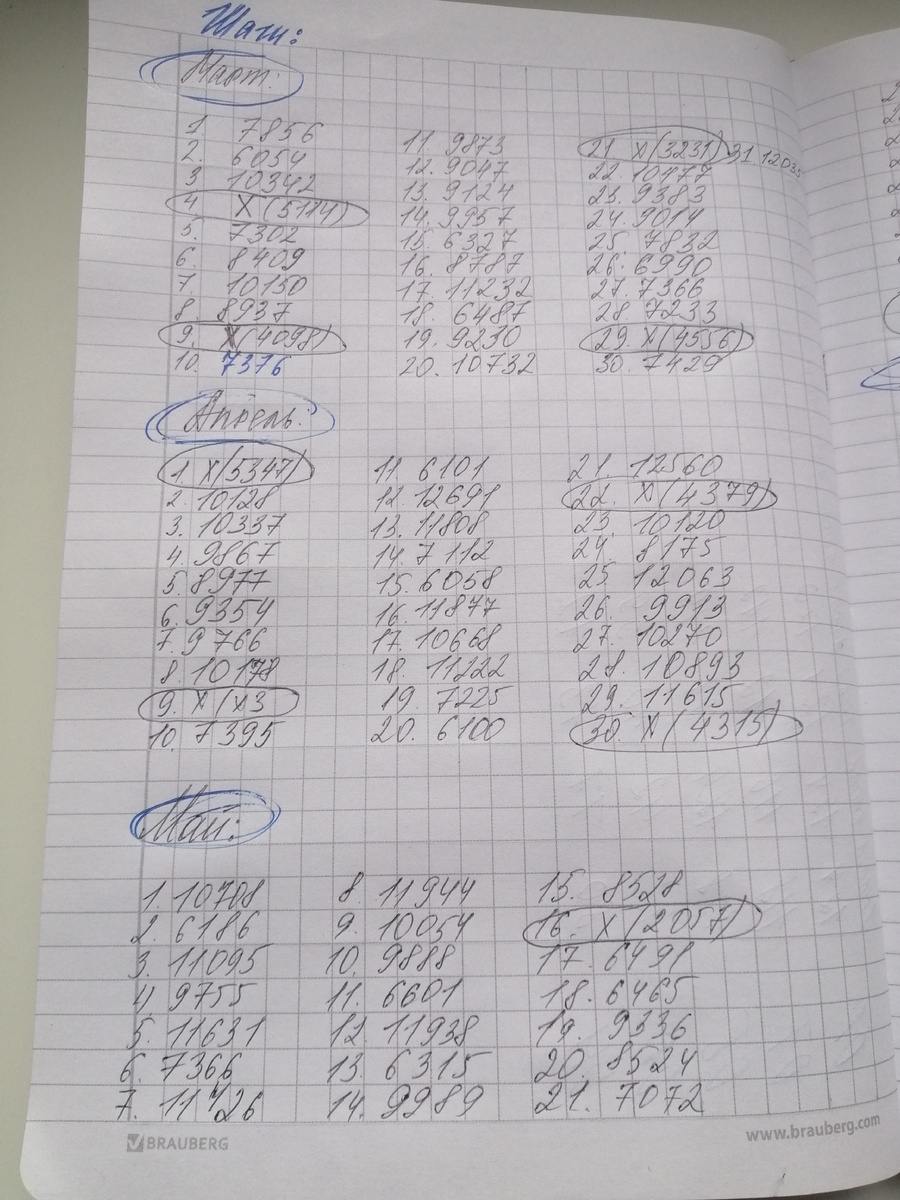 Шаги:
Март:
1 7856
2. 6054
3 10342
4 X (5114)
5. 7302
6. 8409
7. 10150
8. 8937
9. X (4098)
10. 7376
11. 9873
12. 9047
13. 9124
14. 9957
15. 6327
16. 8787
17. 11232
18. 6487
19. 9230
20. 10732
21 X (3231)
22. 10477
23. 9383
24. 9014
25. 7832
26. 6990
27. 7366
28 7233
29. X (4556)
30. 7429
31 12035
Апрель:
1. X (5347)
2. 10128
3. 10337
4. 9867
5. 8977
6. 9354
7. 9766
8. 10178
9. X (х3
10. 7395
11. 6101
12. 12691
13. 11808
14. 7112
15. 6058
16. 11877
17. 10668
18. 11222
19. 7225
20. 6100
21. 12560
22. X (4379)
23. 10120
24. 8175
25. 12063
26. 9913
27. 10270
28. 10893
29. 11615
30. X (4315)
Май:
1. 10708
2. 6186
3. 11095
4 9755
5. 11631
6. 7366
7. 11426
8. 11944
9. 10054
10. 9888
11. 6601
12. 11938
13. 6315
14. 9989
15. 8528
16. X (2057)
17. 6491
18. 6465
19. 9336
20. 8524
21. 7072
BRAUBERG
www.brauberg.com